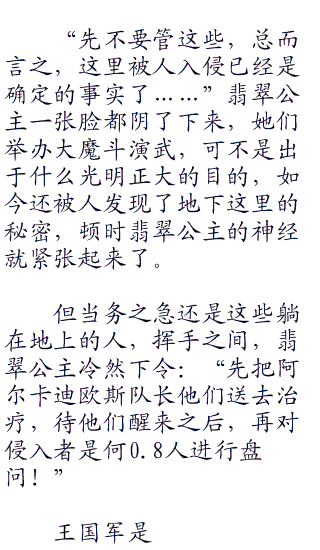 “先不要管这些，总而
言之，这里被人入侵已经是
确定的事实了……”翡翠公
主一张脸都阴了下来，她们
举办大魔斗演武，可不是出
于什么光明正大的目的，如
今还被人发现了地下这里的
秘密，顿时翡翠公主的神经
就紧张起来了。
但当务之急还是这些躺
在地上的人，挥手之间，翡
翠公主冷然下令：“先把阿
尔卡迪欧斯队长他们送去治
疗，待他们醒来之后，再对
侵入者是何0.8人进行盘
问！”
王国军是